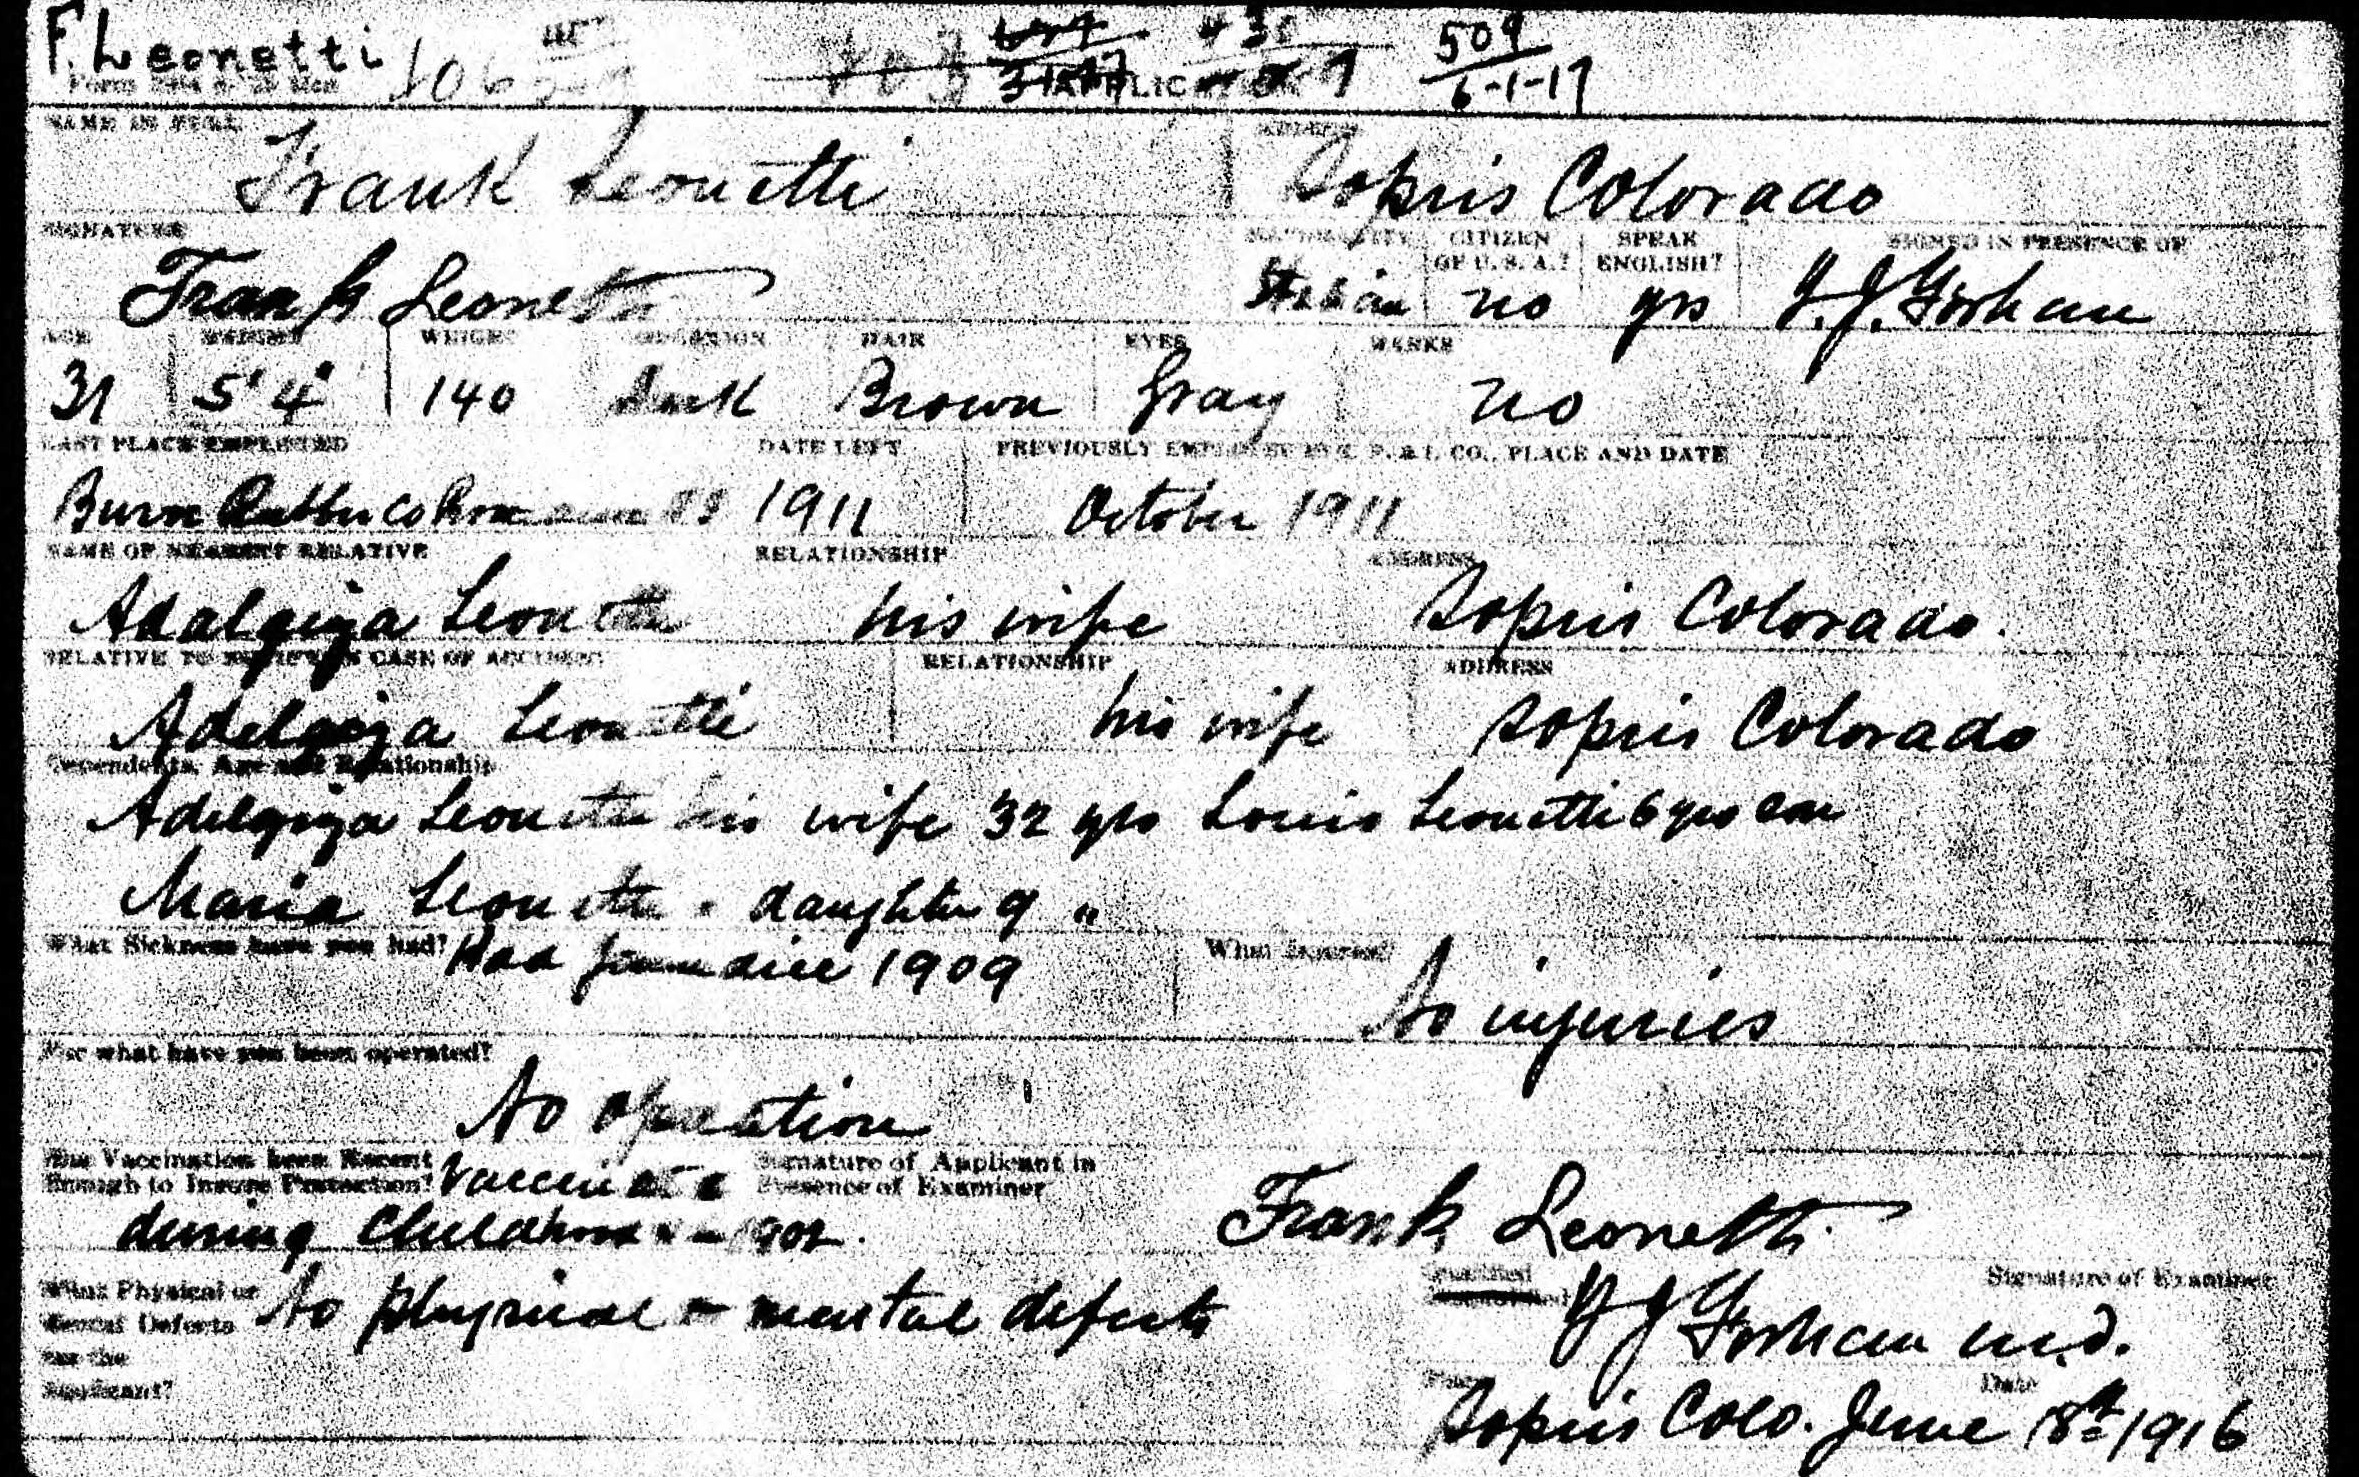 F. Leonetti
509
6-1-17
NAME IN FULL
Frank Leonetti
Sopris Colorado
SIGNATURE
CITIZEN OF U. S. A.?
SPEAK ENGLISH?
SIGNED IN PRESENCE OF
Frank Leonetti
Italian
no
yes
AGE
HEIGHT
WEIGHT
HAIR
EYES
MARKS
31
5' 4"
140
Dark
Brown
Gray
no
LAST PLACE EMPLOYED
DATE LEFT
PREVIOUSLY EMPLOYED BY C. F. & I. CO., PLACE AND DATE
1911
October 1911
NAME OF NEAREST RELATIVE
RELATIONSHIP
ADDRESS
Adalgiza Leonetti
his wife
Sopris Colorado.
RELATIVE TO NOTIFY IN CASE OF ACCIDENT
RELATIONSHIP
ADDRESS
Adelgiza Leonetti
his wife
Sopris Colorado
Dependents, Age and Relationship
Adelgiza Leonetti his wife 32 yrs Louis Leonetti 6 yrs son
Maria Leonetti daughter 9 "
What Sickness have you had?
Had jaundice 1909
What Injuries?
No injuries
For what have you been operated?
No operation
Has Vaccination been Recent
Enough to Insure Protection?
Vaccinated
during Childhood
Signature of Applicant in
Presence of Examiner
Frank Leonetti
What Physical or
Mental Defects
has the
Applicant?
No physical or mental defects
Signature of Examiner
M.D.
Date
Sopris Colo. June 18th 1916